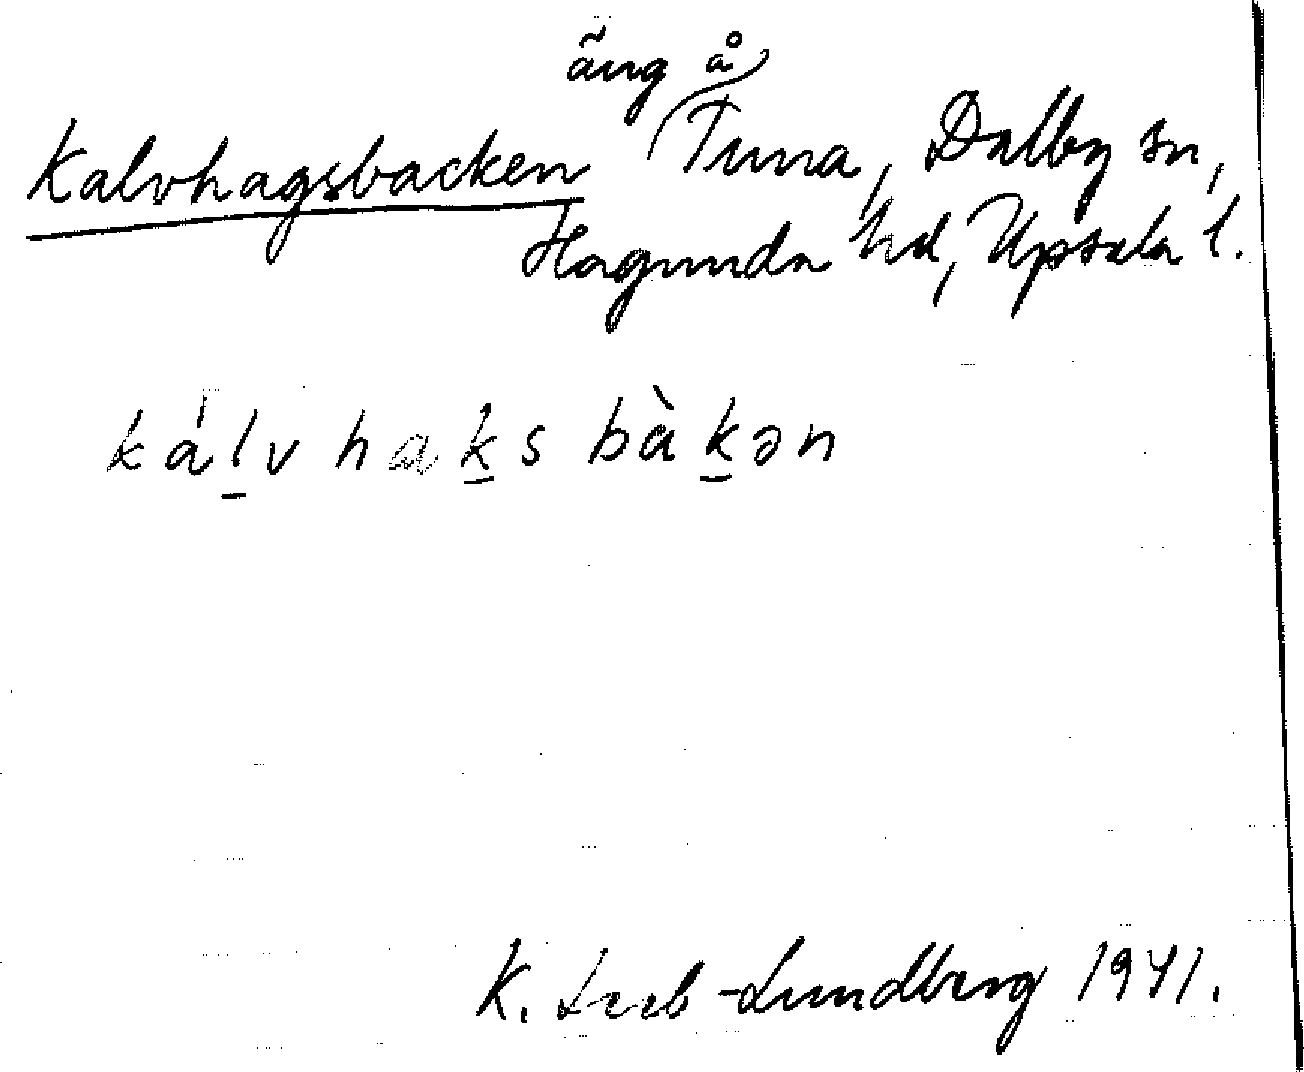 äng å
Kalvhagsbacken Tuna, Dalby sn,
Hagunda hd, Upsala l.
ká̍l̠v hak̠s bàk̠ən
K. Leeb-Lundberg 1941.